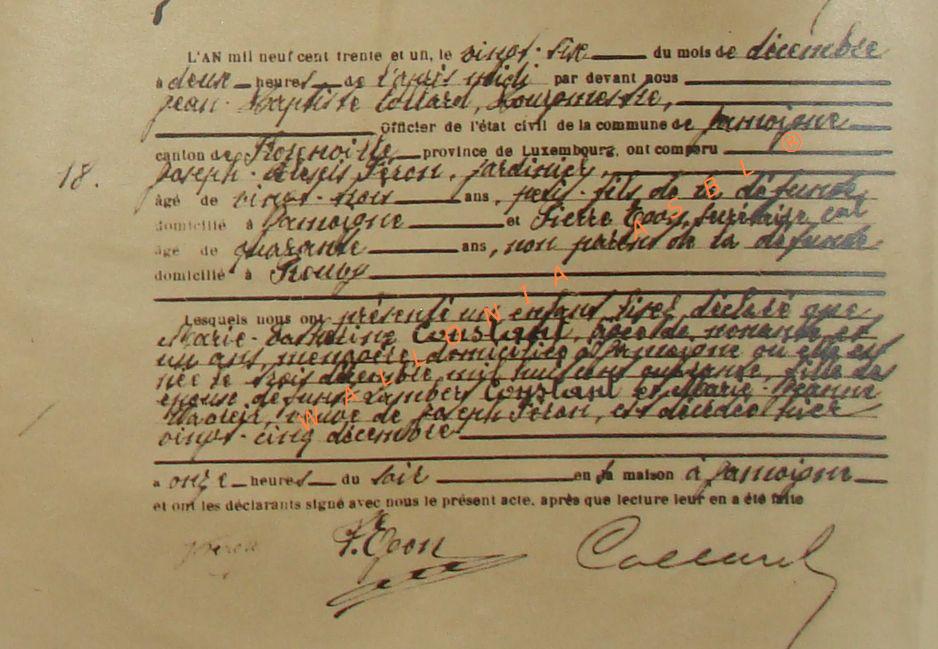 L'AN mil neuf cent trente et un, le vingt-six du mois de décembre
à deux heures de l'après midi par devant nous
Jean-Baptiste Collard, Bourgmestre,
Officier de l'état civil de la commune de Jamoigne
canton de province de Luxembourg, ont comparu
18.
Joseph-Alexis Péron, jardinier,
âgé de vingt-trois ans, petit-fils de la défunte
domicilié à Jamoigne et Pierre secrétaire cal
âgé de quarante ans, non parent de la défunte
domicilié à
Lesquels nous ont présenté un enfant sixel déclaré que
Marie- Constant, âgée de nonante et
un ans, ménagère, domiciliée à Jamoigne où elle est
née le trois décembre mil huit cent quarante, fille des
époux défunts Lambert Constant et Marie-Jeanne
veuve de Joseph Péron, est décédée hier
vingt-cinq décembre
à onze heures du soir en sa maison à Jamoigne
et ont les déclarants signé avec nous le présent acte, après que lecture leur en a été faite
Collard
WALLONIA ASBL ®